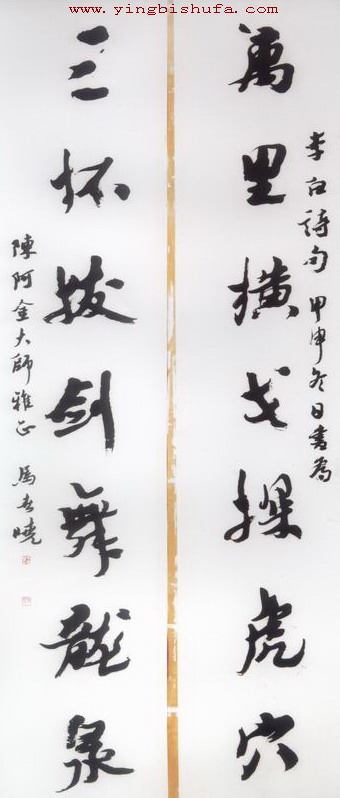 www.yingbishufa.com
李白詩句 甲申冬日書為
萬里橫戈探虎穴
三杯拔劍舞龍泉
陳阿金大師雅正 馬曉